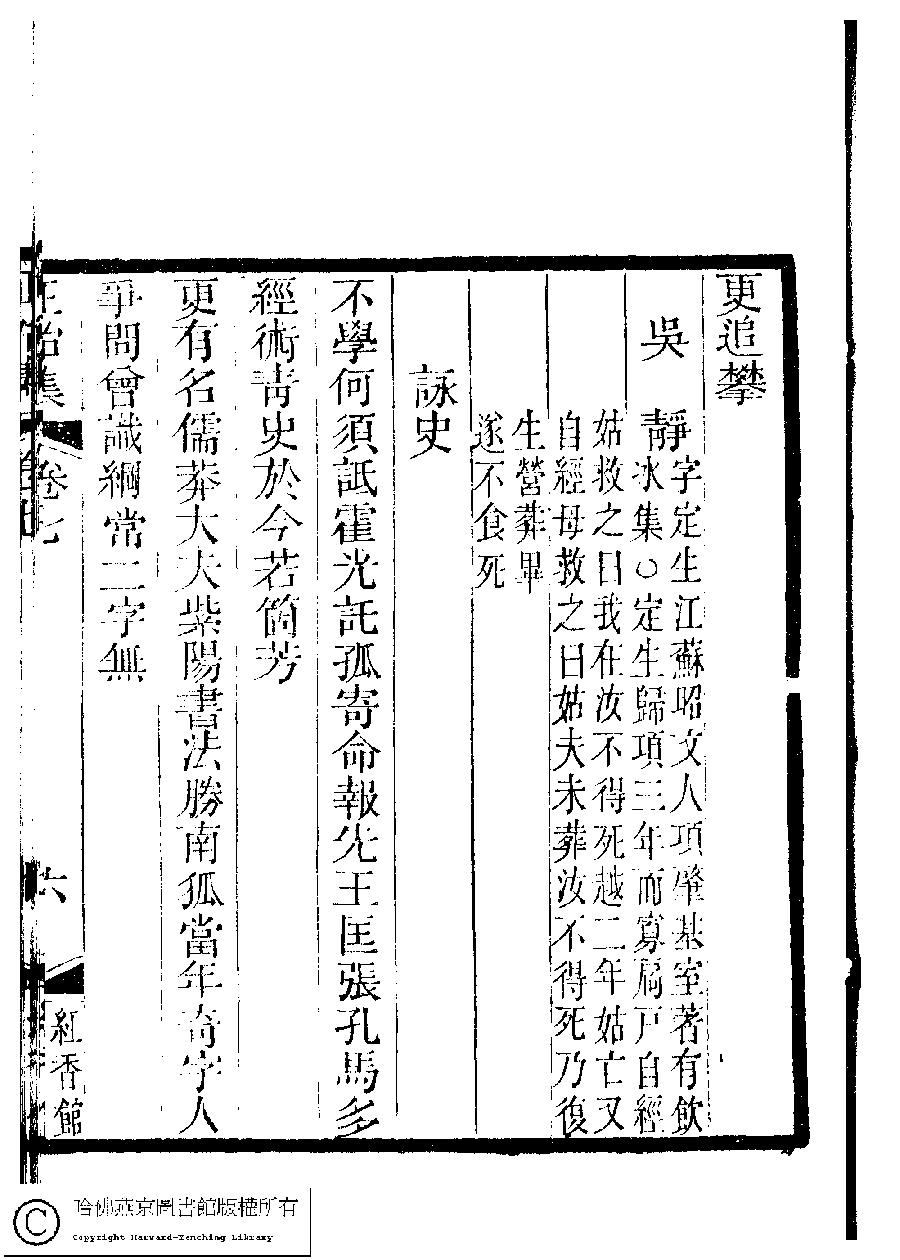 更追攀
吳　靜字定生江蘇昭文人項肇基室著有飲
冰集○定生歸項三年而寡扃戸自經
姑救之曰我在汝不得死越二年姑亡又
自經母救之曰姑夫未葬汝不得死乃復
生營葬畢
遂不食死
詠史
不學何須詆霍光託孤寄命報先王匡張孔馬多
經術靑史於今若箇芳
更有名儒莽大夫紫陽書法勝南狐當年奇字人
爭問曾識綱常二字無
正始集
卷七
六
紅香館
哈佛燕京圖書館版權所有
Copyright Harvard-Yenching Library